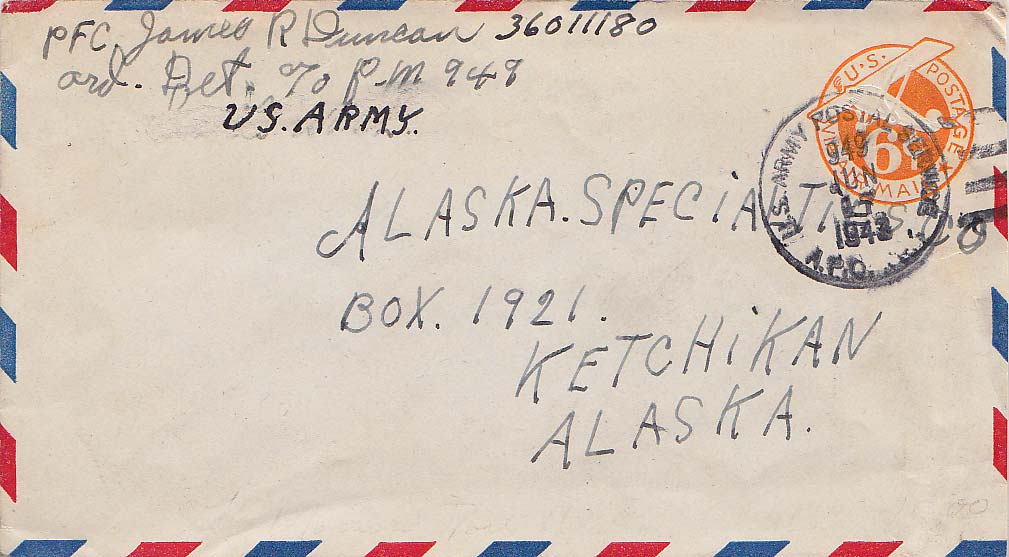 PFC. James R Duncan 36011180
ord. Det. % P.M 948
U.S. ARMY.
U.S. POSTAGE
6¢
VIA AIR MAIL
U.S. ARMY POSTAL SERVICE
949
JUN
1942
A.P.O.
ALASKA. SPECIALTIES. CO
BOX. 1921.
KETCHiKAN
ALASKA.